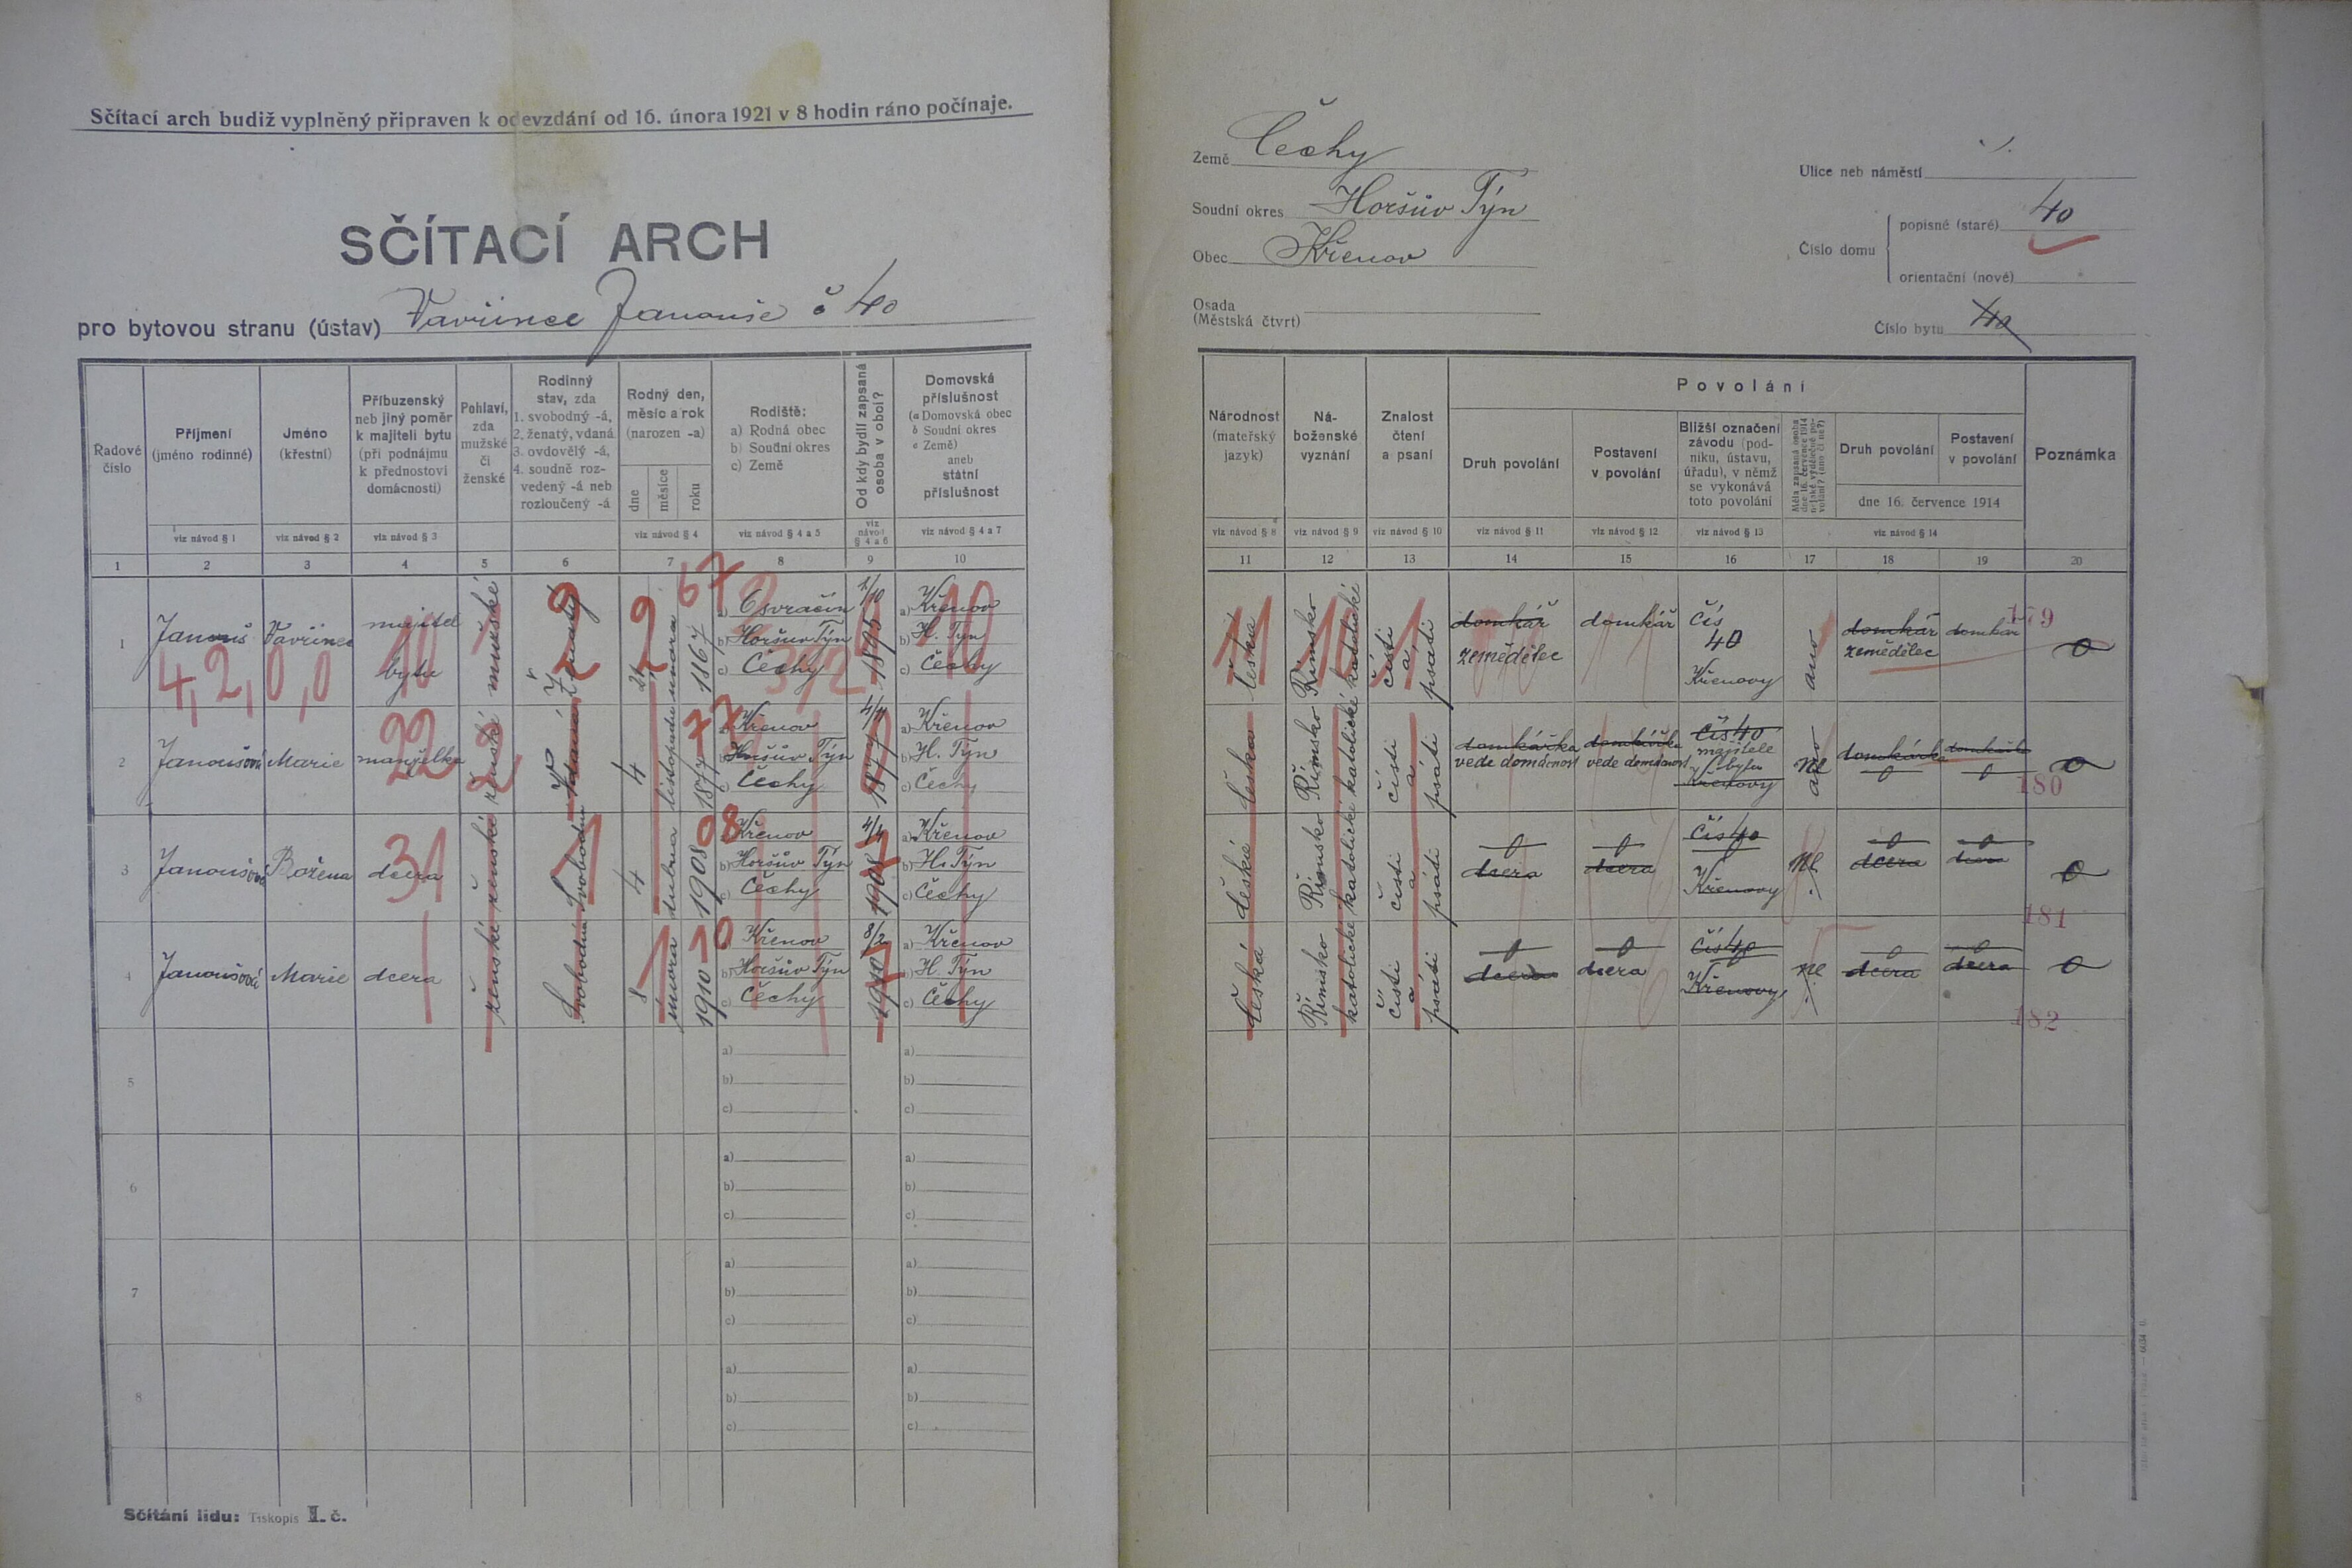 Sčítací arch budiž vyplněný připraven k odevzdání od 16. února 1921 v 8 hodin ráno počínaje.
SČÍTACÍ ARCH
pro bytovou stranu (ústav) Vavřince Janouše č 40
Řadové číslo
Příjmení (jméno rodinné)
Jméno (křestní)
Příbuzenský neb jiný poměr k majiteli bytu (při podnájmu k přednostovi domácnosti)
Pohlaví, zda mužské či ženské
Rodinný stav, zda 1. svobodný -á, 2. ženatý, vdaná 3. ovdovělý -á, 4. soudně rozvedený -á neb rozloučený -á
Rodný den, měsíc a rok (narozen -a)
dne
měsíce
roku
Rodiště:
a) Rodná obec
b) Soudní okres
c) Země
Od kdy bydlí zapsaná osoba v obci?
Domovská příslušnost
(a Domovská obec
b Soudní okres
c Země)
aneb státní příslušnost
viz návod § 1
viz návod § 2
viz návod § 3
viz návod § 4
viz návod § 4 a 5
viz návod § 4 a 6
viz návod § 4 a 7
1 2 3 4 5 6 7 8 9 10
1 Janouš Vavřinec majitel bytu mužské ženatý 2 února 1867
a) Osvračín
b) Horšův Týn
c) Čechy
1/10 1895
a) Křenov
b) H. Týn
c) Čechy
4,2,0,0
10
67
2 Janoušová Marie manželka ženské vdaná 4 listopadu 1877
a) Křenov
b) Horšův Týn
c) Čechy
4/11 1877
a) Křenov
b) H. Týn
c) Čechy
22
77
3 Janoušová Božena dcera ženské svobodná 4 dubna 1908
a) Křenov
b) Horšův Týn
c) Čechy
4/4 1908
a) Křenov
b) H. Týn
c) Čechy
31
08
4 Janoušová Marie dcera ženské svobodná 8 února 1910
a) Křenov
b) Horšův Týn
c) Čechy
8/2 1910
a) Křenov
b) H. Týn
c) Čechy
10
5
a)
b)
c)
a)
b)
c)
6
a)
b)
c)
a)
b)
c)
7
a)
b)
c)
a)
b)
c)
8
a)
b)
c)
a)
b)
c)
Sčítání lidu: Tiskopis I. č.
Země Čechy
Soudní okres Horšův Týn
Obec Křenov
Osada (Městská čtvrt)
Ulice neb náměstí
Číslo domu
popisné (staré) 40
orientační (nové)
Číslo bytu 40
Národnost (mateřský jazyk)
Náboženské vyznání
Znalost čtení a psaní
Povolání
Druh povolání
Postavení v povolání
Bližší označení závodu (podniku, ústavu, úřadu), v němž se vykonává toto povolání
Druh povolání
Postavení v povolání
dne 16. července 1914
Poznámka
viz návod § 8
viz návod § 9
viz návod § 10
viz návod § 11
viz návod § 12
viz návod § 13
viz návod § 14
11 12 13 14 15 16 17 18 19 20
česká Římsko katolické čísti a psáti domkář zemědělec domkář čís 40 Křenovy ano domkář zemědělec domkář 0
179
česká Římsko katolické čísti a psáti domkářka vede domácnost domkářka vede domácnost čís 40 majitele bytu Křenovy ano ne domkářka 0 domkářka 0 0
180
české Římsko katolické čísti a psáti 0 dcera 0 dcera čís 40 Křenovy ne 0 dcera 0 dcera 0
181
česká Římsko katolické čísti a psáti 0 dcera 0 dcera čís 40 Křenovy ne 0 dcera 0 dcera 0
182